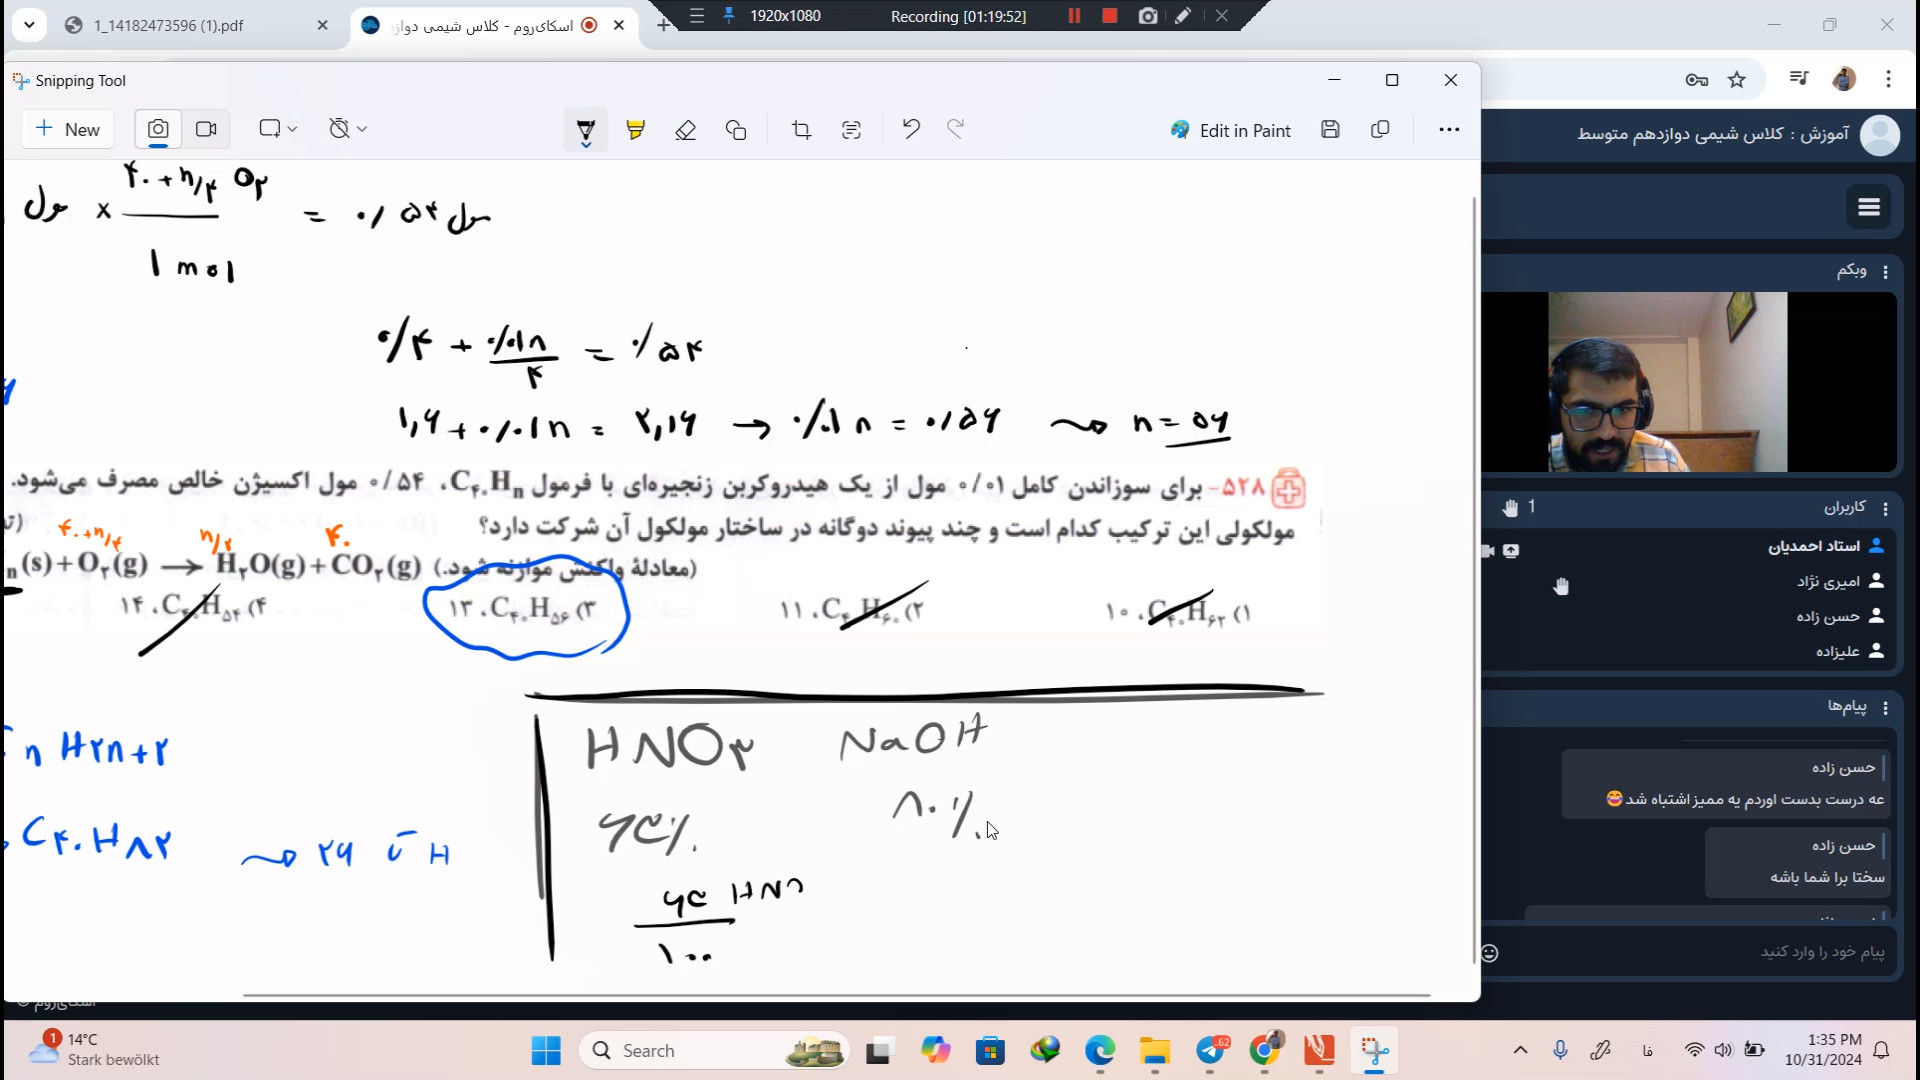 1_14182473596 (1).pdf
اسکای‌روم - کلاس شیمی دواز
1920x1080
Recording [01:19:52]
Snipping Tool
New
Edit in Paint
مول × ۴۰+n/۴ O۲ / 1 mol = ۰/۵۴ مول
۰/۴ + ۰/۰۱n / ۴ = ۰/۵۴
۱,۶ + ۰/۰۱n = ۲,۱۶ → ۰/۰۱ n = ۰/۵۶ ⟿ n = ۵۶
۵۲۸- برای سوزاندن کامل ۰/۰۱ مول از یک هیدروکربن زنجیره‌ای با فرمول C۴۰Hn، ۰/۵۴ مول اکسیژن خالص مصرف می‌شود.
مولکولی این ترکیب کدام است و چند پیوند دوگانه در ساختار مولکول آن شرکت دارد؟
۴۰+n/۴ n/۲ ۴۰
n(s) + O۲(g) → H۲O(g) + CO۲(g) (معادلهٔ واکنش موازنه شود.)
۱) C۴۰H۶۲، ۱۰
۲) C۴۰H۶۰، ۱۱
۳) C۴۰H۵۶، ۱۳
۴) C۴۰H۵۴، ۱۴
n H۲n+۲
C۴۰H۸۲ ⟿ ۲۶ H
HNO۳ NaOH
۸۰٪
HNO
۱۰۰
آموزش : کلاس شیمی دوازدهم متوسط
وبکم
کاربران
1
استاد احمدیان
امیری نژاد
حسن زاده
علیزاده
پیام‌ها
حسن زاده
عه درست بدست اوردم یه ممیز اشتباه شد😂
حسن زاده
سختا برا شما باشه
پیام خود را وارد کنید
اسکای‌روم
1
14°C
Stark bewölkt
Search
62
فا
1:35 PM
10/31/2024